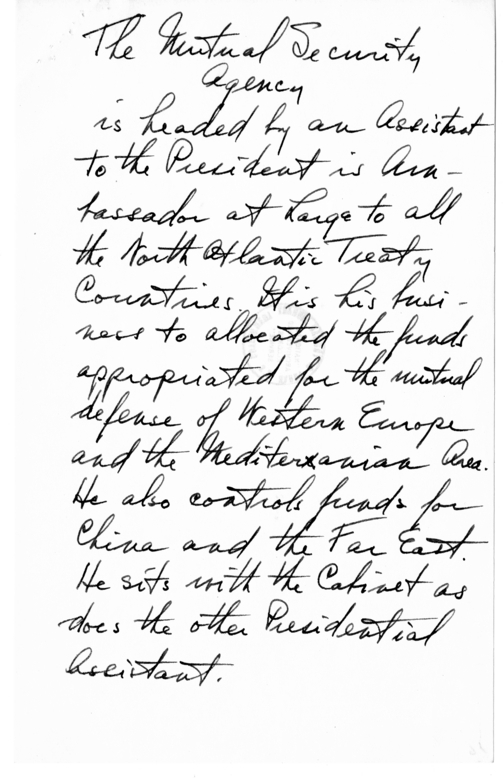 The Mutual Security
Agency
is headed by an Assistant
to the President is Am-
bassador at Large to all
the North Atlantic Treaty
Countries. It is his busi-
ness to allocated the funds
appropriated for the mutual
defense of Western Europe
and the Mediterxanian Area.
He also controls funds for
China and the Far East.
He sits with the Cabinet as
does the other Presidential
Assistant.